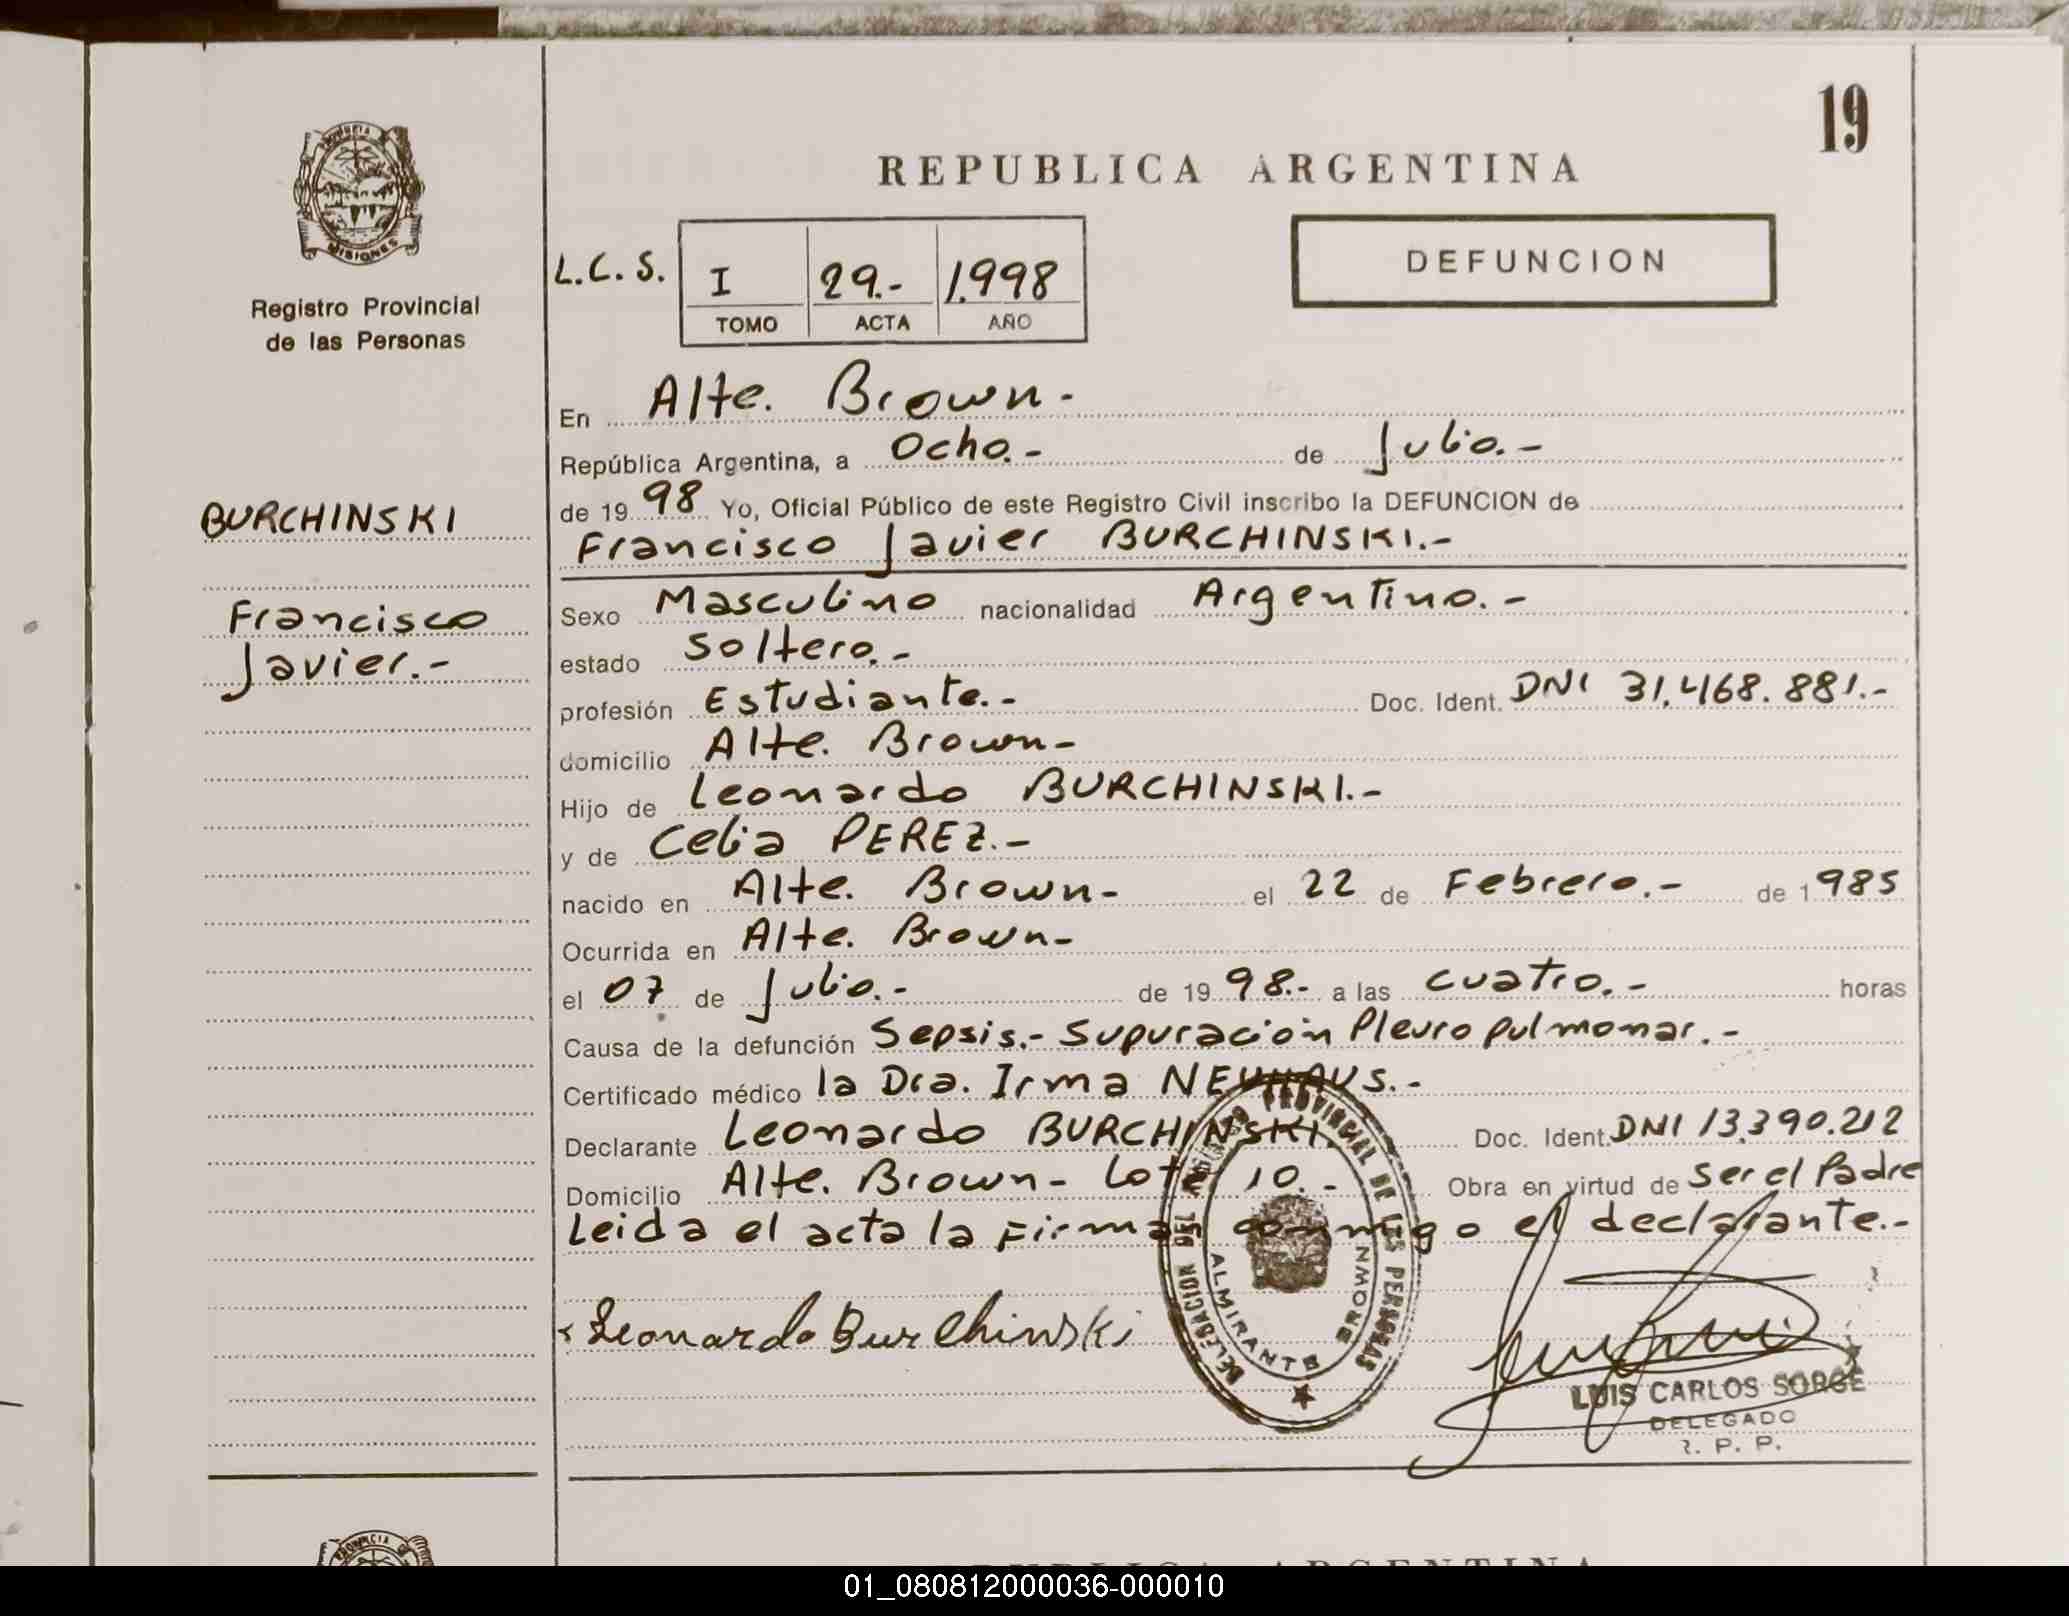 19
REPUBLICA ARGENTINA
PROVINCIA DE
MISIONES
Registro Provincial
de las Personas
L.C.S.
I 29.- 1.998
TOMO ACTA AÑO
DEFUNCION
BURCHINSKI
Francisco
Javier.-
En Alte. Brown.-
República Argentina, a Ocho.- de Julio.-
de 1998 Yo, Oficial Público de este Registro Civil inscribo la DEFUNCION de
Francisco Javier BURCHINSKI.-
Sexo Masculino nacionalidad Argentino.-
estado Soltero.-
profesión Estudiante.- Doc. Ident. DNI 31.468.881.-
domicilio Alte. Brown-
Hijo de Leonardo BURCHINSKI.-
y de Celia PEREZ.-
nacido en Alte. Brown- el 22 de Febrero.- de 1985
Ocurrida en Alte. Brown-
el 07 de Julio.- de 1998.- a las cuatro.- horas
Causa de la defunción Sepsis.- Supuración Pleuropulmonar.-
Certificado médico la Dra. Irma NEUHAUS.-
Declarante Leonardo BURCHINSKI. Doc. Ident. DNI 13.390.212
Domicilio Alte. Brown- Lote 10.- Obra en virtud de Ser el Padre
Leida el acta la Firma conmigo el declarante.-
Leonardo Burchinski
DELEGACION DEL REGISTRO PROVINCIAL DE LAS PERSONAS
ALMIRANTE BROWN
LUIS CARLOS SORGE
DELEGADO
R. P. P.
REPUBLICA ARGENTINA
01_080812000036-000010